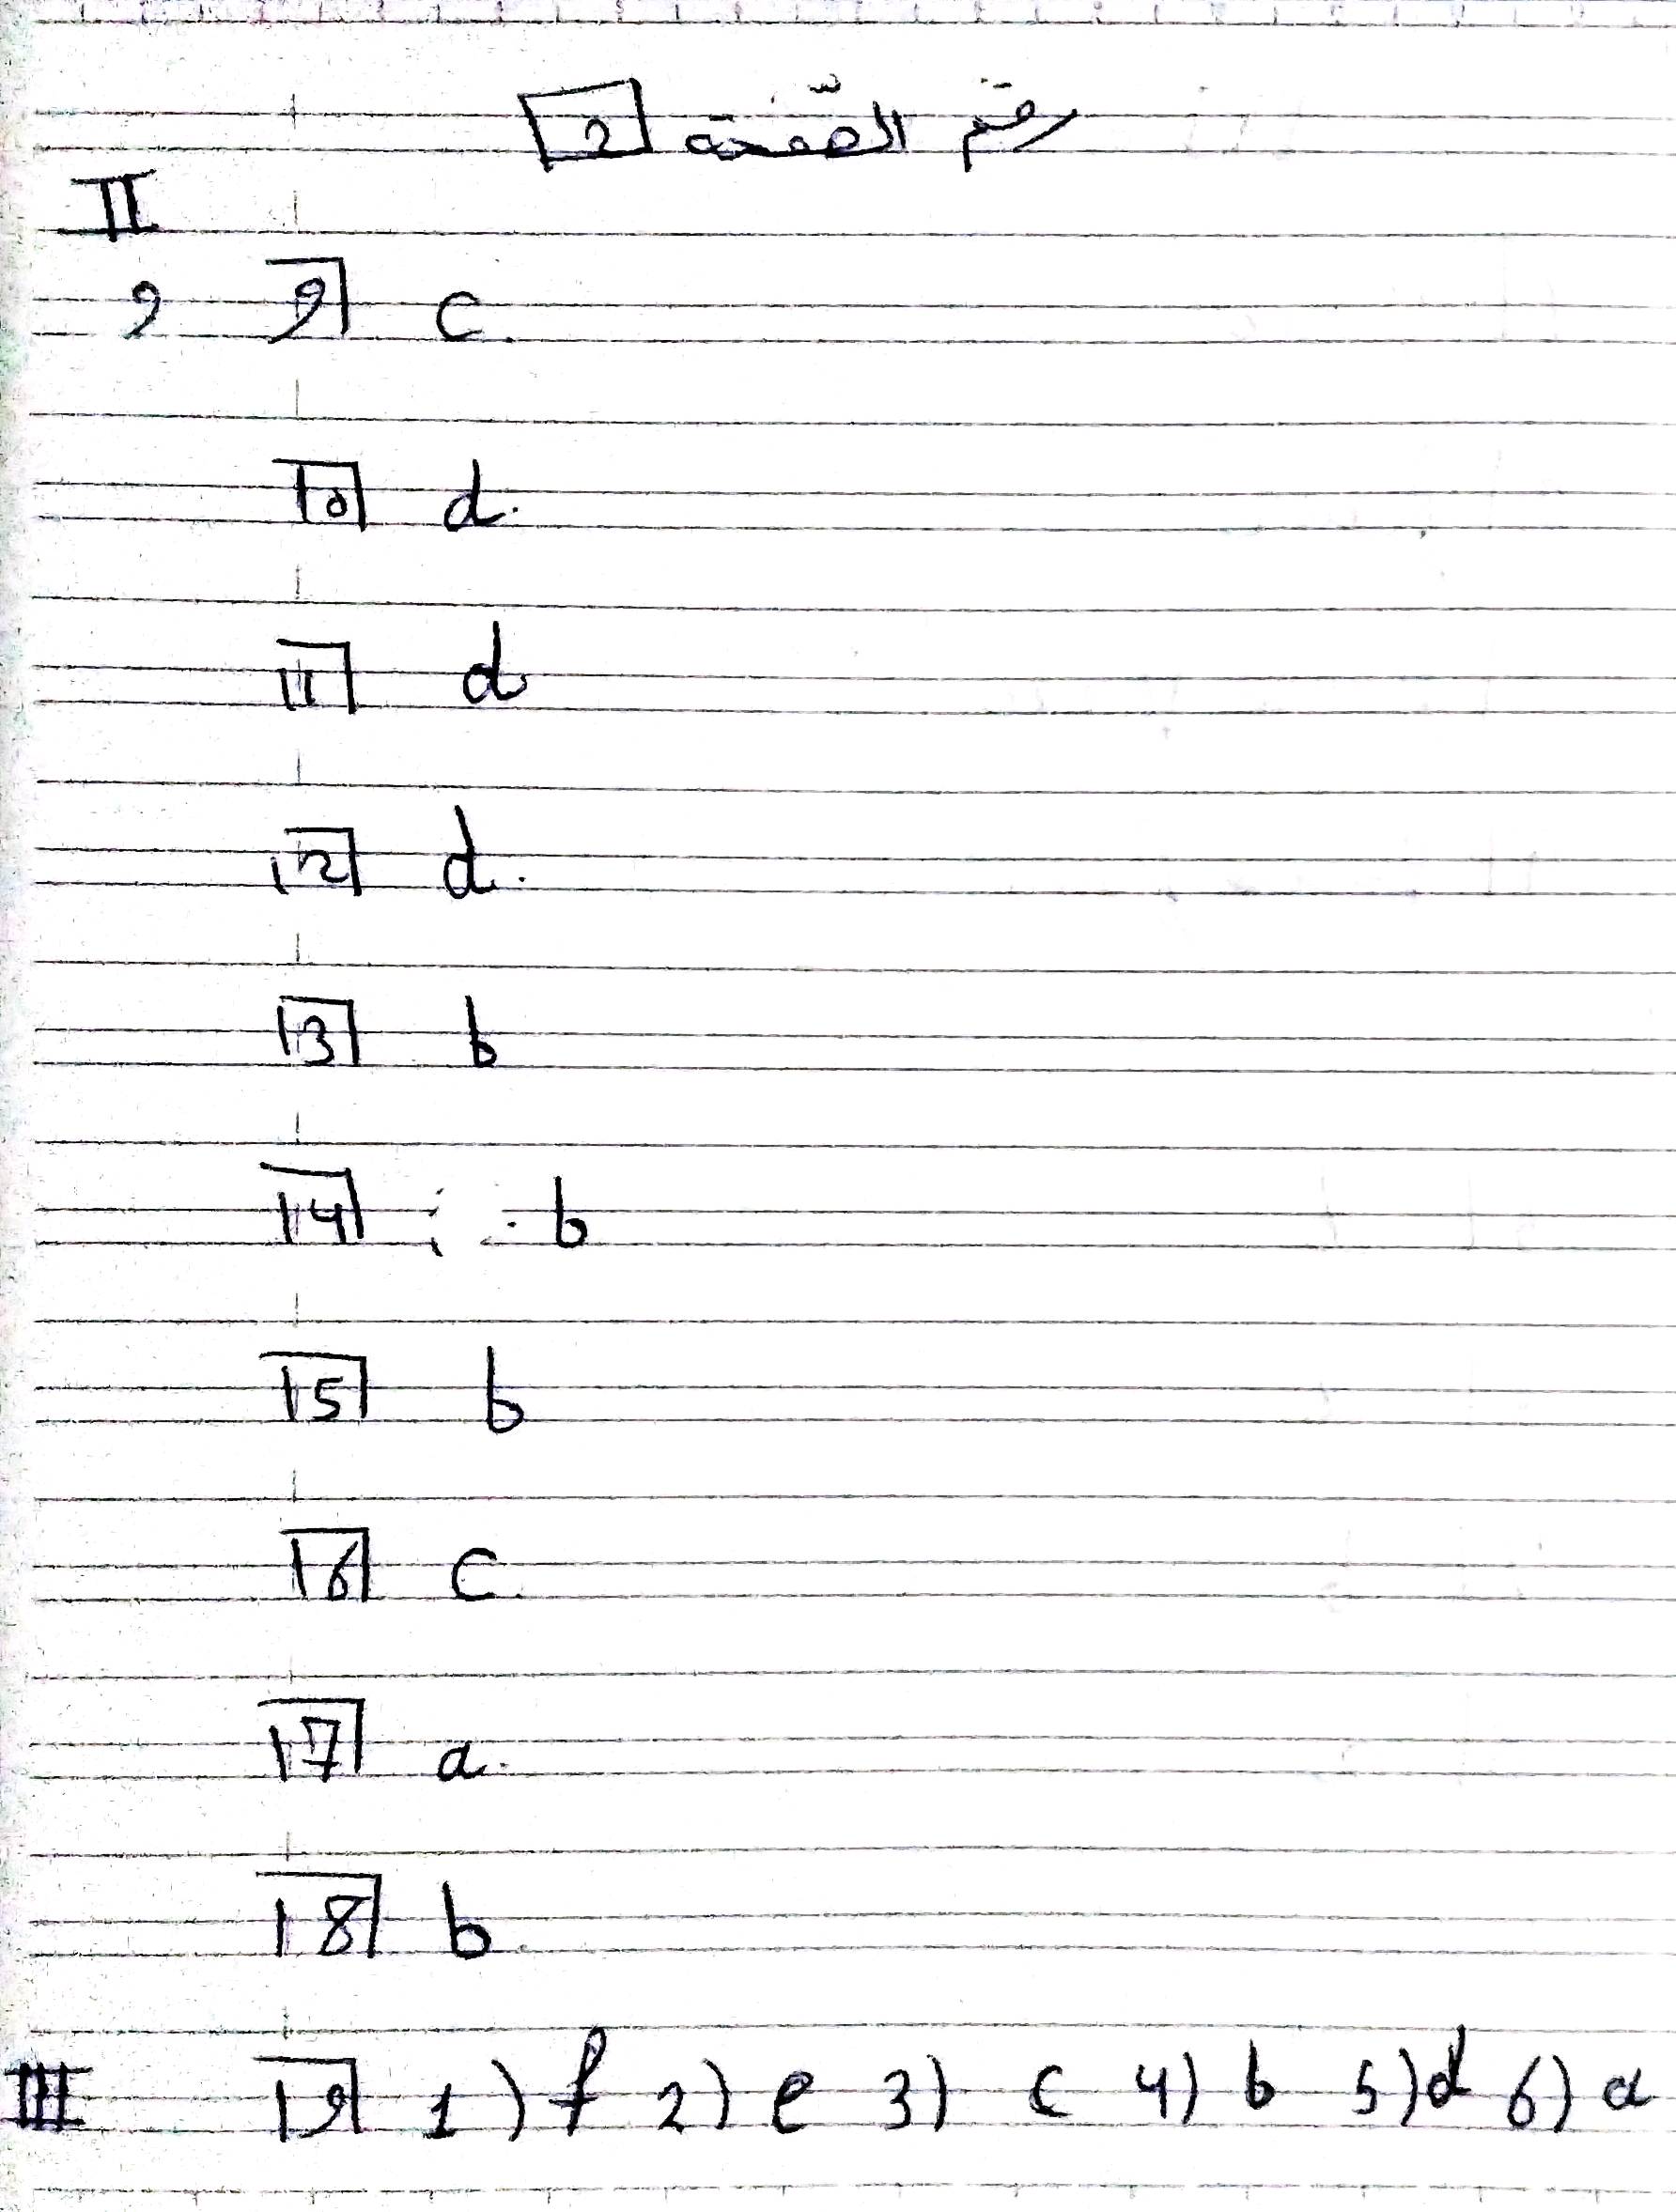 رقم الصّفحة 2
II
9 9 c.
10 d.
11 d
12 d.
13 b
14 b
15 b
16 c.
17 a.
18 b.
III 19 1) f 2) e 3) c 4) b 5) d 6) a